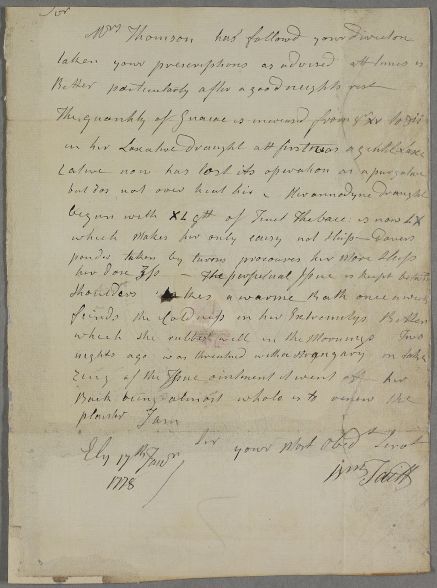 Sir
Mrs Thomson has followd your direction
taken your prescriptions as advised att times is
Better particularly after a good nights rest
The quantity of Guaiac is increased from gr xv to
in her Laxative draught att first was a gentle Laxa
-ative now has lost its operation as a purgative
but dos not over heat her - Her annodyne draught
begun with XL gtt of Tinct Thebaec is now LX
which makes her only easy not sleep - Dovers
pouder taken by turns procoures her More Sleep
her dose ʒss - The perpetual Issue is keept betwixt
Shoulders takes a warme Bath once a week
fiends the Coldness in her Extremetys Better
which she rubbes well in the Mornings Two
nights ago was threatned with a strangury on take
-ing of the Issue ointment it went off her
Back being almost whole is to renew the
plaister I am
Sir your Most Obedt Servt
Ely 17th Janr
1778 Wm Taitt